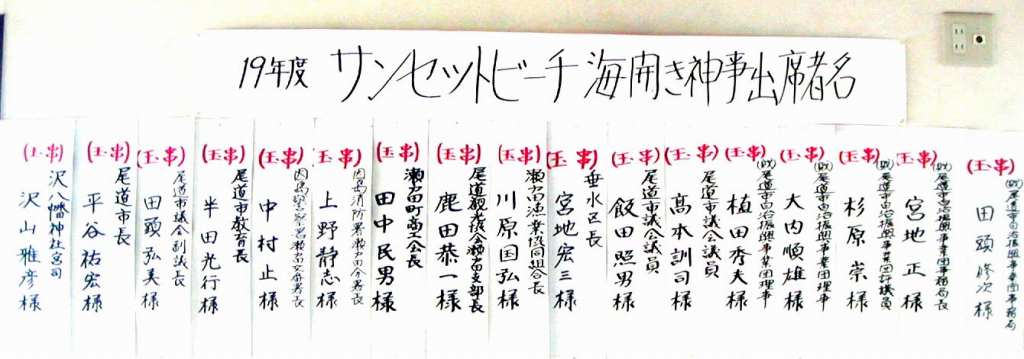 19年度 サンセットビーチ海開き神事出席者名
(玉串)
(財)尾道市自治振興事業団事務局
田頭修次様
(玉串)
(財)尾道市自治振興事業団事務局長
宮地正様
(玉串)
(財)尾道市自治振興事業団評議員
杉原崇様
(玉串)
(財)尾道市自治振興事業団理事
大内順雄様
(玉串)
(財)尾道市自治振興事業団理事
植田秀夫様
(玉串)
尾道市議会議員
高本訓司様
(玉串)
尾道市議会議員
飯田照男様
(玉串)
垂水区長
宮地宏三様
(玉串)
瀬戸田漁業協同組合長
川原国弘様
(玉串)
尾道観光協会瀬戸田支部長
鹿田恭一様
(玉串)
瀬戸田町商工会長
田中民男様
(玉串)
因島消防署瀬戸田分署長
上野静志様
(玉串)
因島警察署瀬戸田交番署長
中村止様
(玉串)
尾道市教育長
半田光行様
(玉串)
尾道市議会副議長
田頭弘美様
(玉串)
尾道市長
平谷祐宏様
(玉串)
沢八幡神社宮司
沢山雅彦様